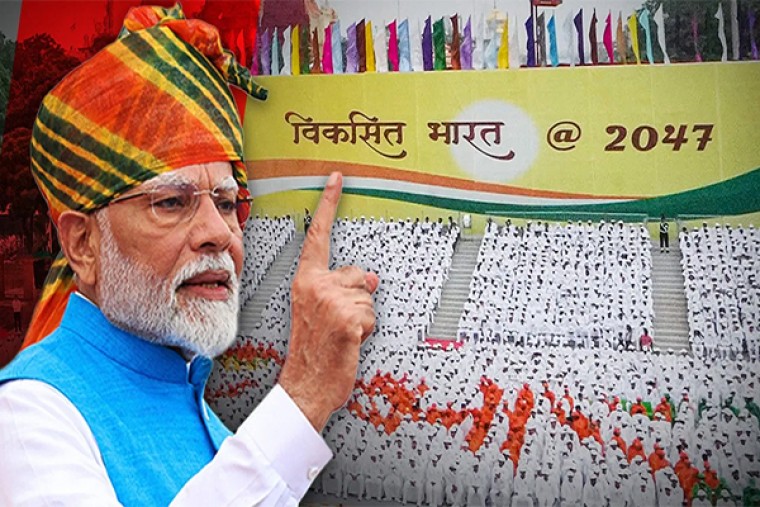 विकसित भारत @ 2047